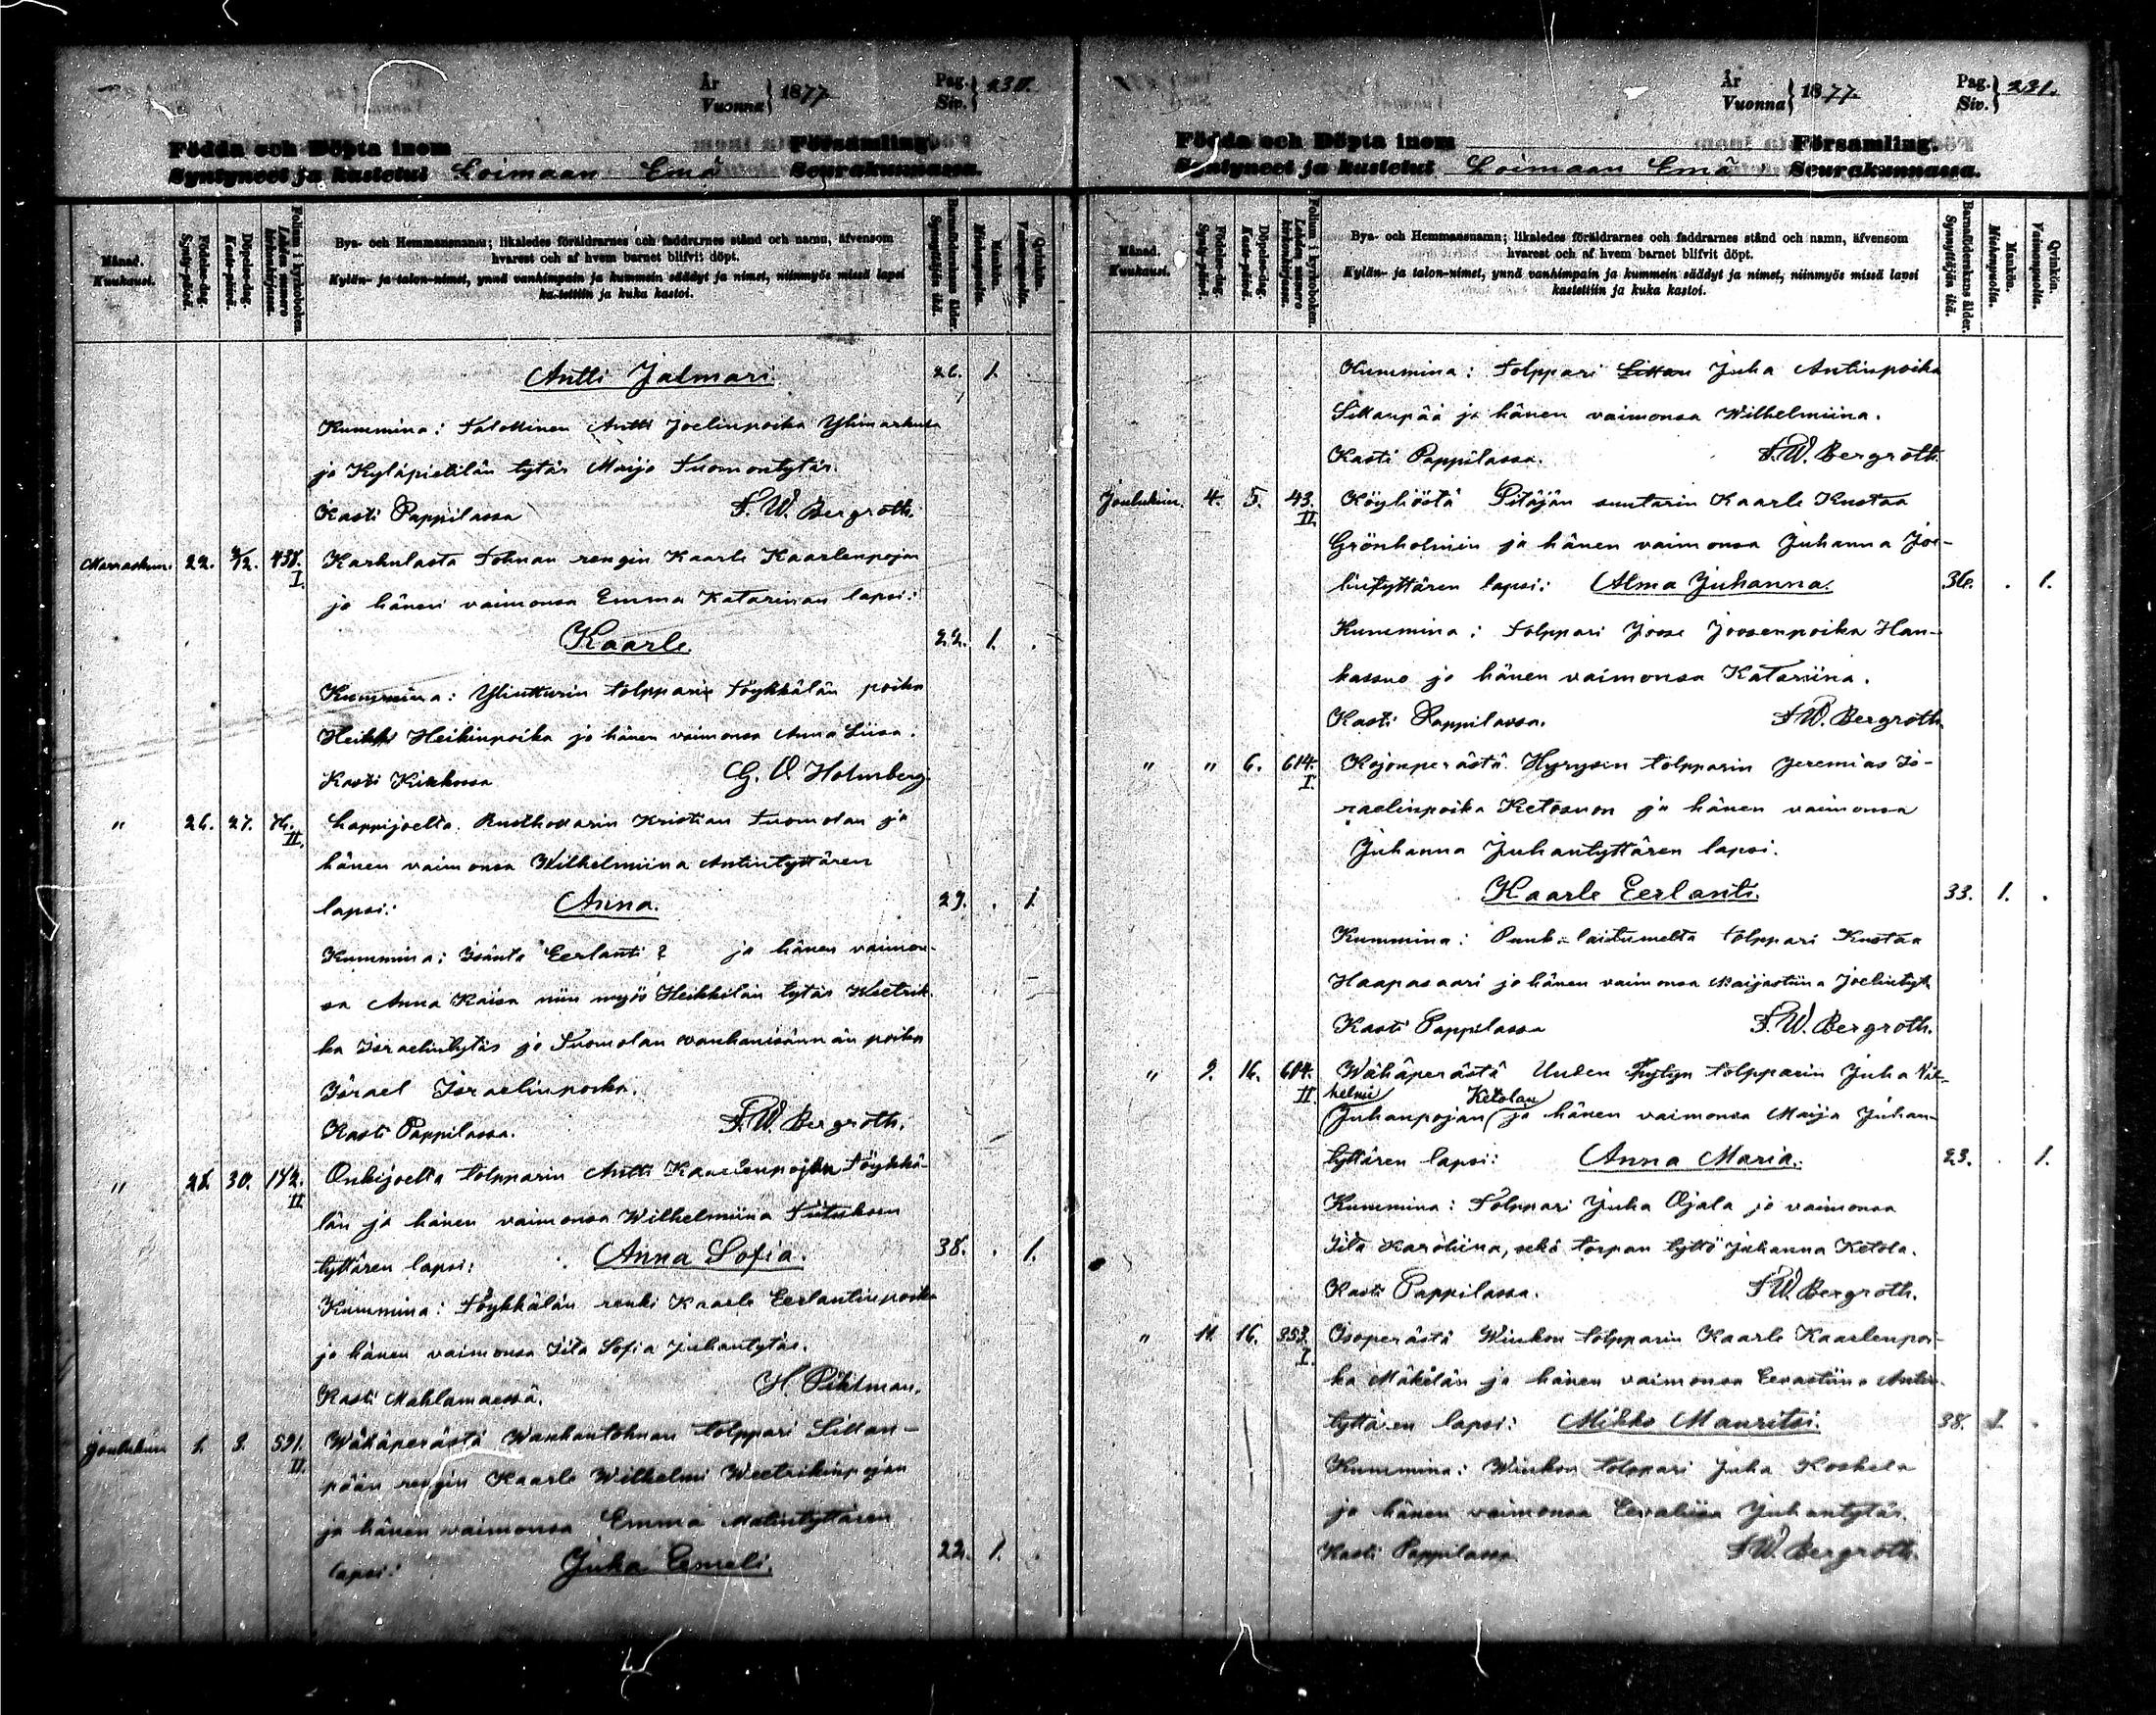 År
Vuonna } 1877
Pag.
Siv. } 230.
Födda och Döpta inom Församling.
Syntyneet ja kastetut Loimaan Emä Seurakunnassa.
Månad.
Kuukausi.
Födelse-dag.
Synty-päivä.
Döpelse-dag.
Kaste-päivä.
Folium i kyrkoboken.
Lehden numero kirkonkirjassa.
Bya- och Hemmansnamn; likaledes föräldrarnes och faddrarnes stånd och namn, äfvensom
hvarest och af hvem barnet blifvit döpt.
Kylän- ja talon-nimet, ynnä vanhimpain ja kummein säädyt ja nimet, niinmyös missä lapsi
kastettiin ja kuka kastoi.
Barnaföderskans ålder.
Synnyttäjän ikä.
Mankön.
Miehenpuolta.
Qvinkön.
Vaimonpuolta.
Antti Jalmari. 26. 1.
Kummina: Talollinen Antti Joelinpoika Ylimarkula
ja Kyläpietilän tytär Maija Tuomontytär.
Kasti Pappilassa F. W. Bergroth.
Marraskuu. 22. 2/12. 438. I. Karhulasta Tohnan rengin Kaarle Kaarlenpojan
ja hänen vaimonsa Emma Katarinan lapsi:
Kaarle. 22. 1. .
Kummina: Ylintturin tolpparin Töykkälän poika
Heikki Heikinpoika ja hänen vaimonsa Anna Liisa.
Kasti Kirkossa G. O Holmberg.
" 26. 27. 76. II. Lappijoelta. Rusthollarin Kristian Tuomolan ja
hänen vaimonsa Wilhelmiina Antintyttären
lapsi: Anna. 29. . 1.
Kummina: Isäntä Eerlanti ? ja hänen vaimon-
sa Anna Kaisa niin myös Heikkilän tytär Weetrik-
ka Israelintytär ja Tuomolan vanhanisännän poika
Israel Israelinpoika.
Kasti Pappilassa. F. W. Bergroth.
" 28. 30. 182. II Onkijoelta tolpparin Antti Kaarlenpojan Töykkä-
län ja hänen vaimonsa Wilhelmiina
tyttären lapsi: Anna Sofia. 38. . 1.
Kummina: Töykkälän renki Kaarle Eerlantinpoika
ja hänen vaimonsa Iita Sofia Juhantytär.
Kasti Mahlamaessä. H. Pihlman.
Joulukuu 1. 3. 591. II. Wähäperästä Wanhantohnan tolppari Sillan-
pään rengin Kaarle Wilhelmi Weetrikinpojan
ja hänen vaimonsa Emma Matintyttären
lapsi: Juha Eemeli. 22. 1. .
År
Vuonna } 1877.
Pag.
Siv. } 231.
Födda och Döpta inom Församling.
Syntyneet ja kastetut Loimaan Emä Seurakunnassa.
Månad.
Kuukausi.
Födelse-dag.
Synty-päivä.
Döpelse-dag.
Kaste-päivä.
Folium i kyrkoboken.
Lehden numero kirkonkirjassa.
Bya- och Hemmansnamn; likaledes föräldrarnes och faddrarnes stånd och namn, äfvensom
hvarest och af hvem barnet blifvit döpt.
Kylän- ja talon-nimet, ynnä vanhimpain ja kummein säädyt ja nimet, niinmyös missä lapsi
kastettiin ja kuka kastoi.
Barnaföderskans ålder.
Synnyttäjän ikä.
Mankön.
Miehenpuolta.
Qvinkön.
Vaimonpuolta.
Kummina: Tolppari Sillan Juha Antinpoika
Sillanpää ja hänen vaimonsa Wilhelmiina.
Kasti Pappilassa. F. W. Bergroth.
Joulukuu. 4. 5. 43. II. Köyliöstä Pitäjän suutarin Kaarle Kustaa
Grönholmin ja hänen vaimonsa Juhanna Joe-
lintyttären lapsi: Alma Juhanna. 36. . 1.
Kummina: Tolppari Joose Joosenpoika Han-
kassuo ja hänen vaimonsa Katariina.
Kasti Pappilassa. F W. Bergroth.
" " 6. 614. I. Kojonperästä. Hyrysin tolpparin Jeremias Is-
raelinpoika Ketosuon ja hänen vaimonsa
Juhanna Juhantyttären lapsi.
Kaarle Eerlanti. 33. 1. .
Kummina: Punkalaitumelta tolppari Kustaa
Haapasaari ja hänen vaimonsa Maijastiina Joelintyt.
Kasti Pappilassa F. W. Bergroth.
" 9. 16. 604. II. Wähäperästä Uuden Tytyn tolpparin Juha Vil-
helmi Ketolan
Juhanpojan ja hänen vaimonsa Maija Juhan-
tyttären lapsi: Anna Maria. 23. . 1.
Kummina: Tolppari Juha Ojala ja vaimonsa
Iita Karoliina, sekä torpan tyttö Juhanna Ketola.
Kasti Pappilassa. F W. Bergroth.
" 11. 16. 353. I. Osoperästä Wiukon tolpparin Kaarle Kaarlenpoi-
ka Mäkilän ja hänen vaimonsa Eevastiina Antin-
tyttären lapsi: Mikko Mauritsi. 38. 1. .
Kummina: Wiukon tolppari Juha Koskela
ja hänen vaimonsa Eevaliisa Juhantytär.
Kasti Pappilassa F W. Bergroth.